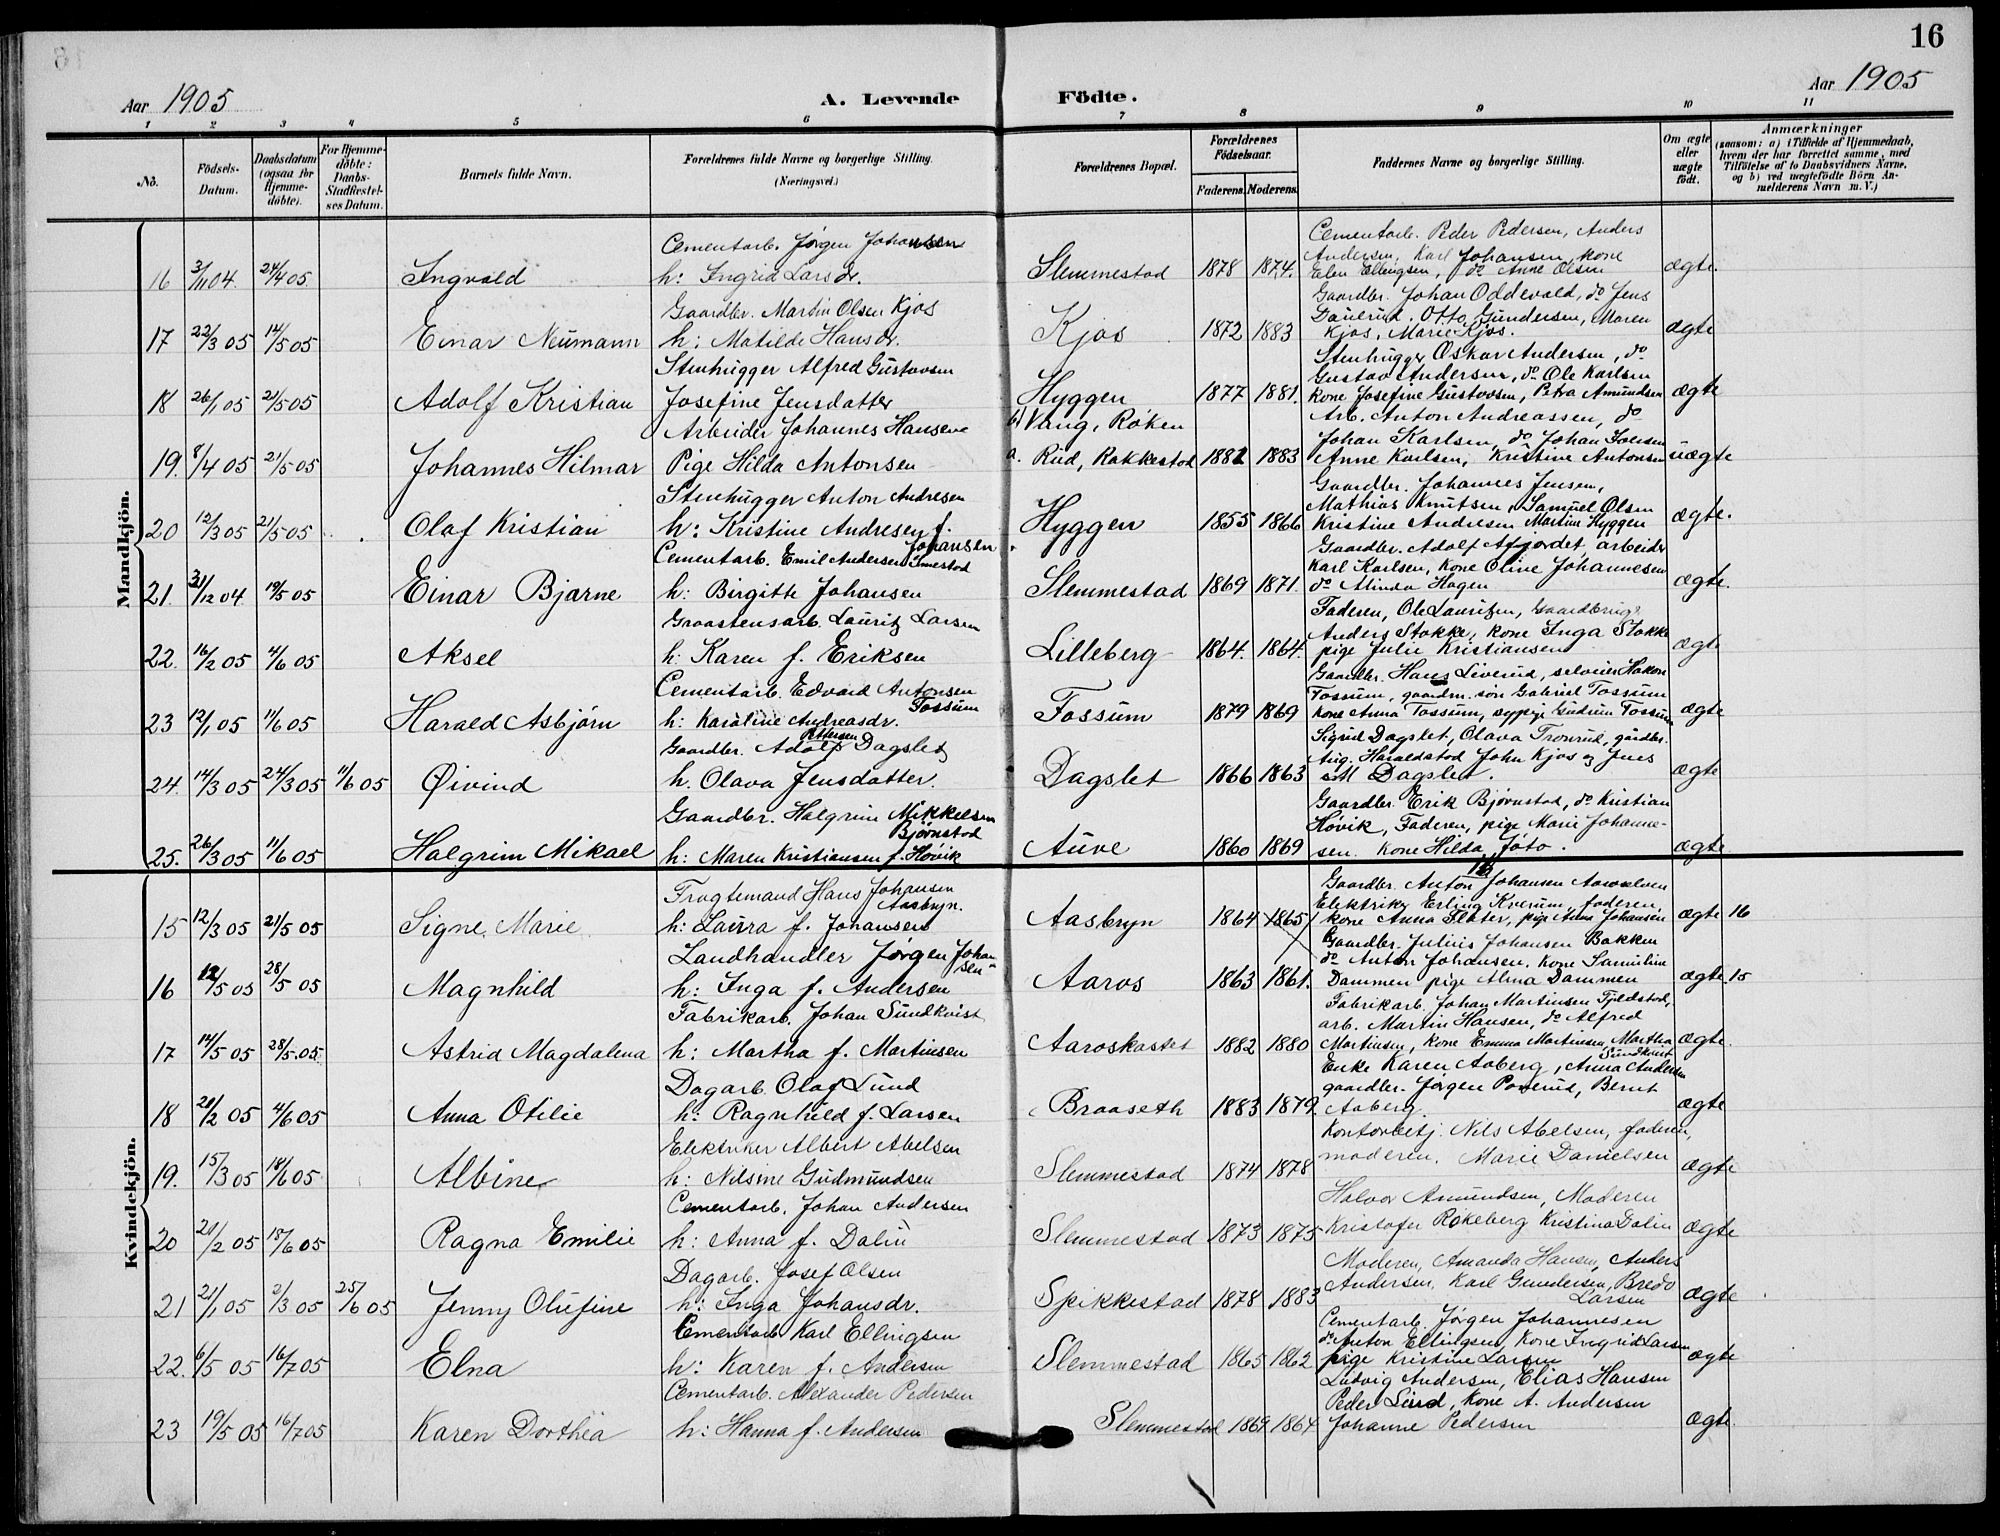 16
Aar 1905
A. Levende Födte.
Aar 1905
1 2 3 4 5 6 7 8 9 10 11
No.
Födsels-Datum.
Daabsdatum (ogsaa for Hjemme-döbte).
For Hjemme-döbte: Daabs-Stadfæstel-ses Datum.
Barnets fulde Navn.
Forældrenes fulde Navne og borgerlige Stilling. (Næringsvei.)
Forældrenes Bopæl.
Forældrenes Födselsaar.
Faderens. Moderens.
Faddernes Navne og borgerlige Stilling.
Om ægte eller uægte födt.
Anmærkninger
(saasom: a) i Tilfælde af Hjemmedaab, hvem der har forrettet samme, med Tilföielse af to Daabsvidners Navne, og b) ved uægtefödte Börn An-melderens Navn m. V.)
Mandkjön.
Cementarb. Jørgen Johansen
Cementarb. Peder Pedersen, Anders
Andersen, Karl Johansen, kone
16 3/11 04 24/4 05 Ingvald h: Ingrid Larsdr. Slemmestad 1878 1874. Elen Ellingsen, do Anne Olsen ægte.
Gaardbr. Martin Olsen Kjos
Gaardbr. Johan Oddevald, do Jens
17 22/3 05 14/5 05 Einar Neumann h: Matilde Hansdr. Kjos 1872 1883 Otto Gundersen, Maren
Kjos, Marie Kjos. ægte
Stenhugger Alfred Gustavsen
Stenhugger Oskar Andersen, do
Gustav Andersen, do Ole Karlsen
18 26/1 05 21/5 05 Adolf Kristian Josefine Jensdatter Hyggen 1877 1881. kone Josefine Gustavsen, Petra Amundsen ægte
Arbeider Johannes Hansen b) Vang, Røken Arb. Anton Andreassen, do
Johan Karlsen, do Johan
19. 8/4 05 21/5 05 Johannes Hilmar Pige Hilda Antonsen a. Rud, Rakkestad 1882 1883 Anne Karlsen, Kristine Antonsen uægte
Stenhugger Anton Andresen
Gaardbr. Johannes Jensen,
Mathias Knutsen, Samuel Olsen
20 12/3 05 21/5 05 Olaf Kristian h: Kristine Andresen f. Johansen Hyggen 1855 1866 Kristine Andresen Martin Hyggen ægte.
Cementarb. Emil Andersen
Gaardbr. Adolf, arbeider
Karl Karlsen, kone Oline Johannesen
21. 31/12 04 19/5 05 Einar Bjarne h: Birgitte Johansen Slemmestad 1869 1871. do Minda Hagen ægte.
Graastensarb. Lauritz Larsen
Faderen, Ole Lauritzen, Gaardbrug.
Anders Stokke, kone Inga Stokke
22. 16/2 05 4/6 05 Aksel h: Karen f. Eriksen Lilleberg 1864. 1864. pige Julie Kristiansen ægte
Cementarb. Edvard Antonsen Fossum
Gaardbr. Hans Liverud, selveier Hakon
Fossum, gaardm. søn Gabriel Fossum
23 12/1 05 11/6 05 Harald Asbjørn h: Karoline Andreasdr. Fossum 1879 1869 kone Anna Fossum, sypige Gudrun Fossum ægte
Gaardbr. Adolf Pettersen Dagslet
Sigrid Dagslet, Olava Tronrud, gårdbr.
Aug. Haraldstad John Kjos og Jens
24. 14/3 05 24/3 05 11/6 05 Øivind h. Olava Jensdatter. Dagslet 1866 1863 Dagslet. ægte
Gaardbr. Halgrim Mikkelsen Bjørnstad
Gaardbr. Erik Bjørnstad, do Kristian
Høvik, Faderen, pige Marie Johanne-
25. 26/3 05 11/6 05 Halgrim Mikael h: Maren Kristiansen f. Høvik Auve 1860 1869 sen. Kone Hilda Joto. ægte
Kvindekjön.
Frugtemand Hans Johansen Aasbryn.
Gaardbr. Anton Johansen
Elektriker Erling, faderen,
15 12/3 05 21/5 05 Signe Marie h: Laura f. Johansen Aasbryn 1864 1865 kone Anna Slater, pige Anna Johansen ægte 16
Landhandler Jørgen Johansen
Gaardbr. Julius Johansen Bakken
do Anton Johansen. Kone Samuline
16 12/5 05 28/5 05 Magnhild h: Inga f. Andersen Aaros 1863 1861. Dammen pige Alma Dammen ægte 15
Fabrikarb. Johan Sundkvist
Fabrikarb. Johan Martinsen Fjeldstad,
arb. Martin Hansen, do Alfred
17 14/5 05 28/5 05. Astrid Magdalena h: Martha f. Martinsen Aaroskastet 1882 1880 Martinsen, kone Emma Martinsen, Martha Sundkvist ægte.
Dagarb. Olaf Lund
Enke Karen Aaberg, Anna Andersen
gaardbr. Jørgen, Bernt
18 21/2 05 4/6 05 Anna Otilie h: Ragnhild f. Larsen Braaseth 1883 1879. Aaberg. ægte
Elektriker Albert Abelsen
Kontorbetj. Nils Abelsen, faderen,
19. 15/3 05 18/6 05 Albine h: Nilsine Gudmundsen Slemmestad 1874 1878 moderen. Marie Danielsen ægte
Cementarb. Johan Andersen
Halvor Amundsen, Moderen
20 21/2 05 18/6 05 Ragna Emilie h: Anna f. Dalin Slemmestad 1873 1875 Kristofer Røkeberg Kristina Dalin ægte
Dagarb. Josef Olsen
Moderen, Amanda Hansen, Anders
21 21/1 05 2/3 05 25/6 05 Jenny Olufine h: Inga Johansdr. Spikkestad 1878 1883 Andersen, Karl Gundersen, Bredo Larsen ægte
Cementarb. Karl Ellingsen
Cementarb. Jørgen Johannesen
do Anton Ellingsen, Kone Ingrid Larsen
22. 6/5 05 16/7 05 Elna h: Karen f. Andersen Slemmestad 1865 1862 pige Kristine Larsen ægte
Cementarb. Alexander Pedersen
Ludvig Andersen, Elias Hansen
Peder Lund, Kone A. Andersen
23 19/5 05 16/7 05 Karen Dorthea h: Hanna f. Andersen Slemmestad 1869 1864 Johanne Pedersen ægte.